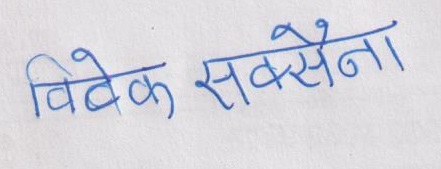 विवेक सक्सैना